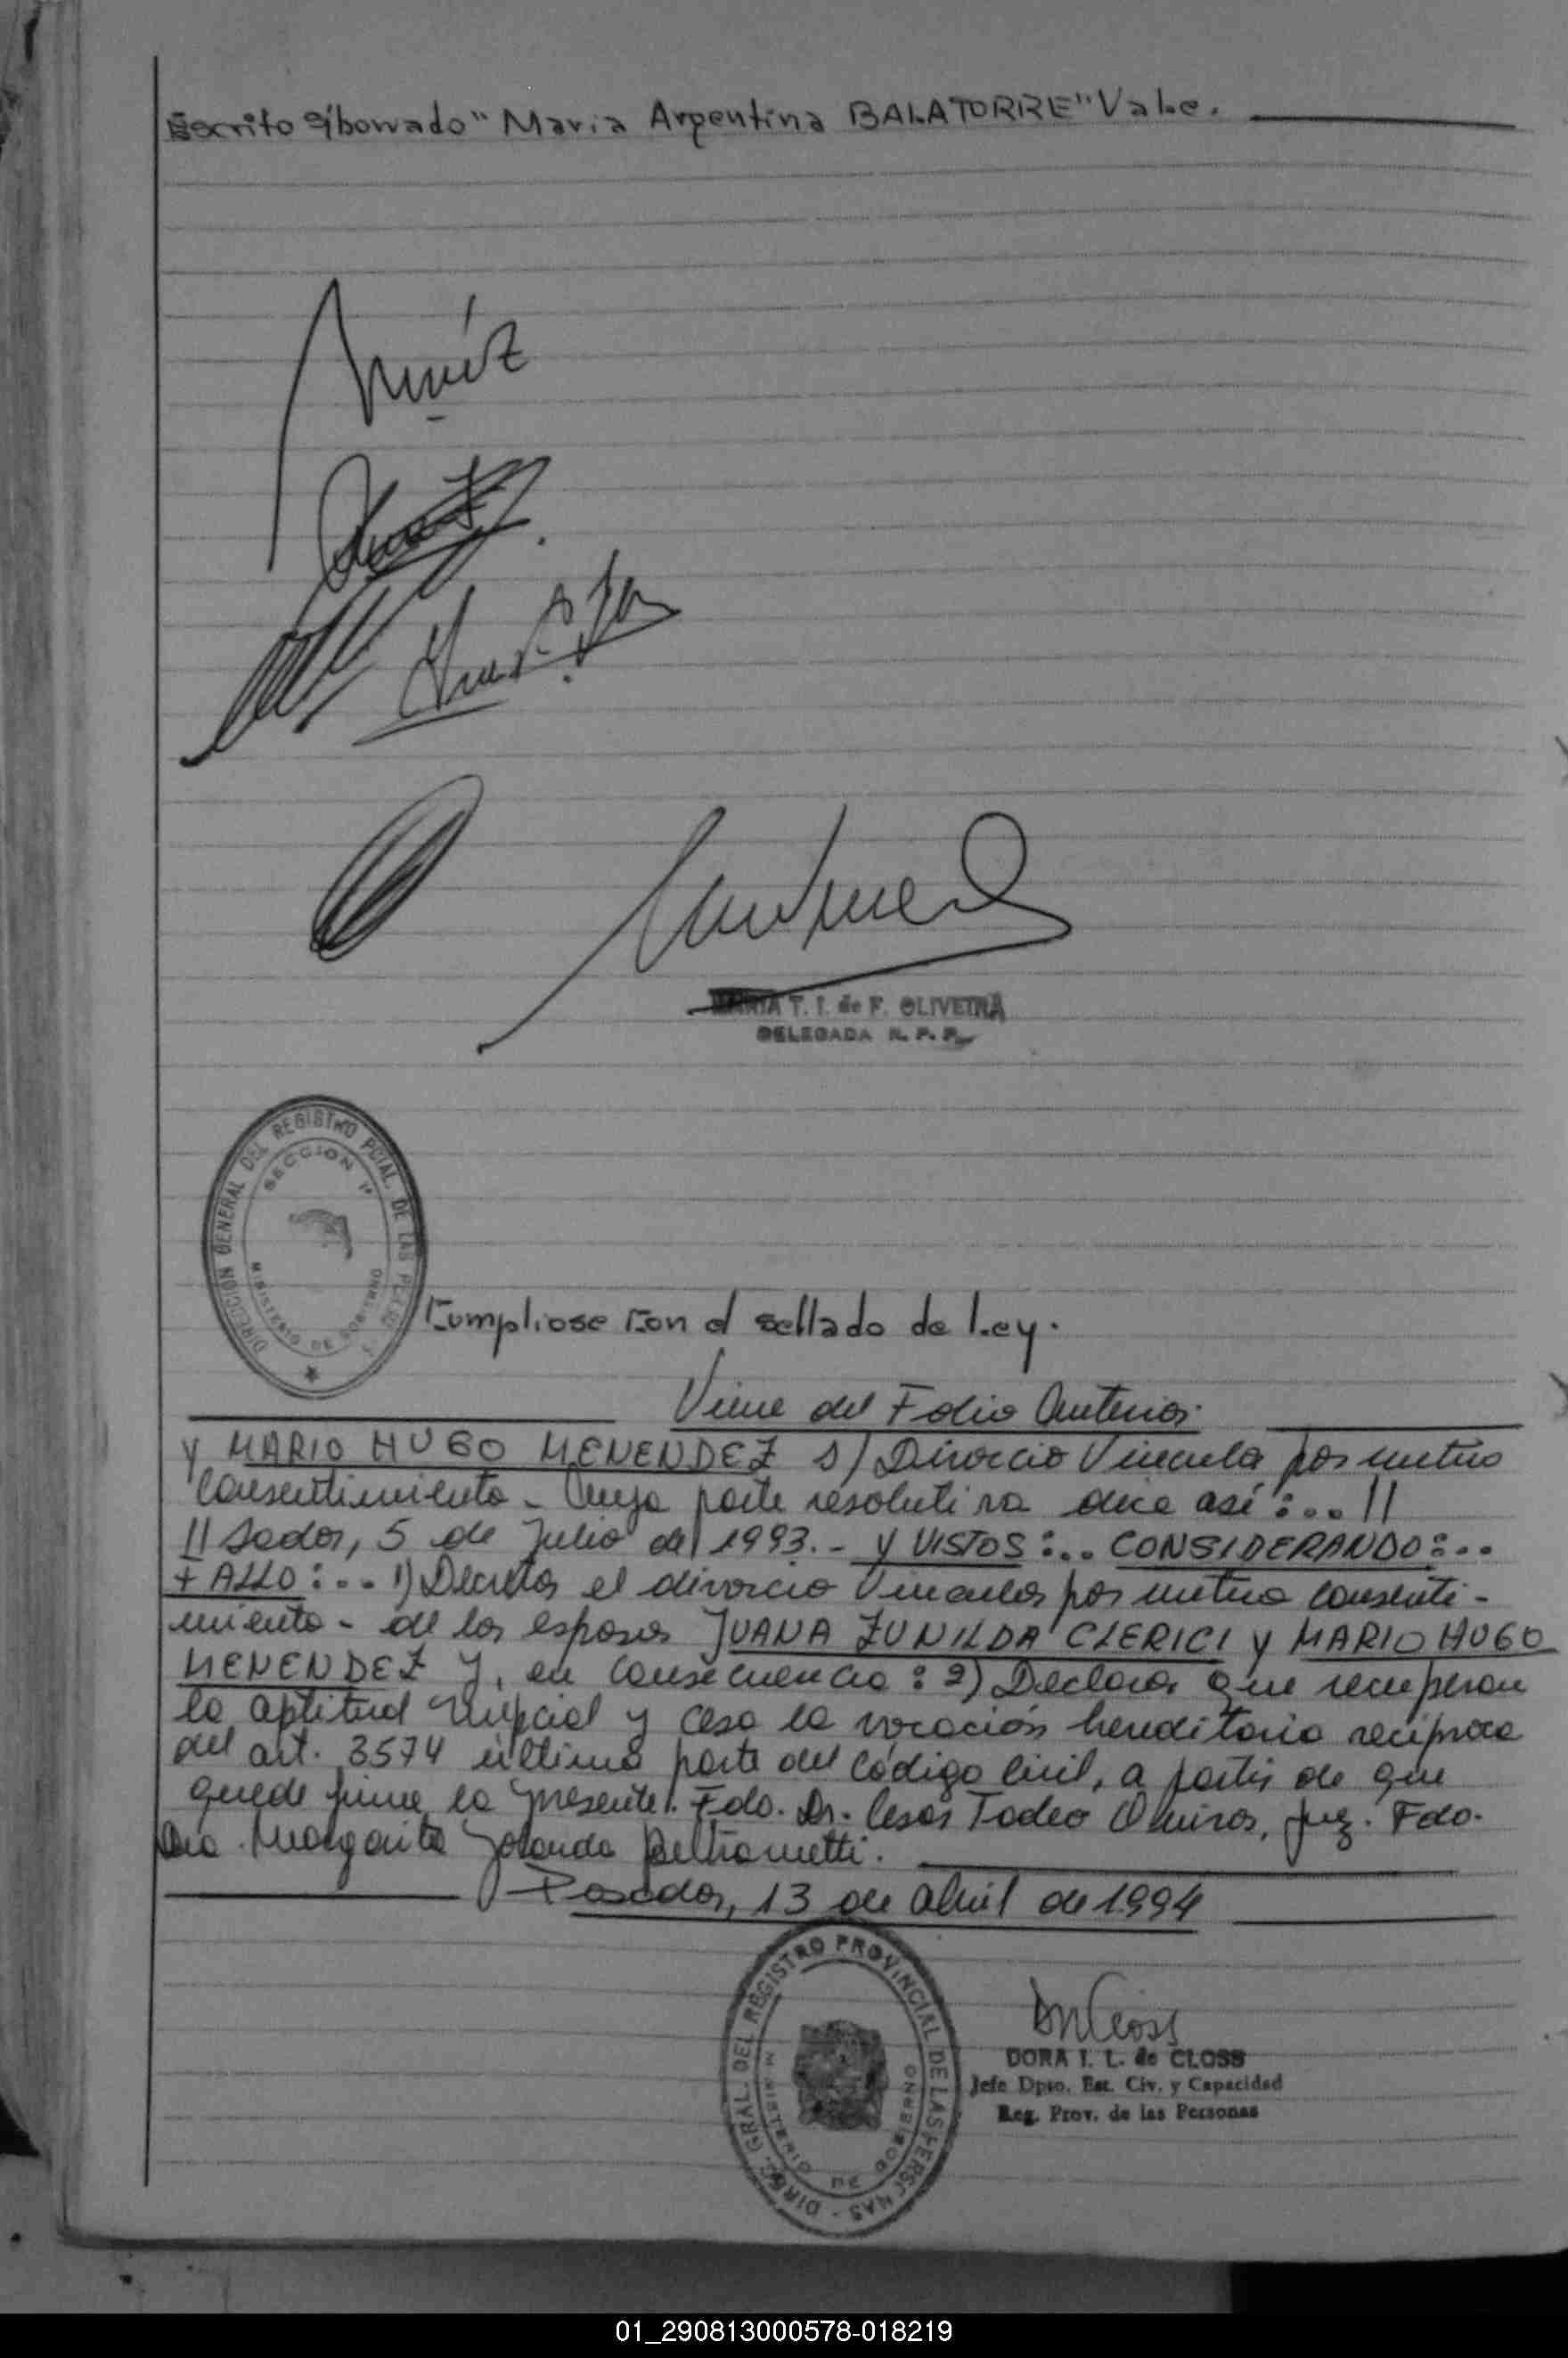 Escrito s/borrado "Maria Argentina BALATORRE" Vale.
MARIA T. I. de F. OLIVEIRA
DELEGADA R. P. P.
DIRECCION GENERAL DEL REGISTRO PCIAL. DE LAS PERSONAS
SECCION 1ª
MINISTERIO DE GOBIERNO
Cumpliose con el sellado de Ley.
Viene del Folio Anterior
y MARIO HUGO MENENDEZ s/ Divorcio Vincular por mutuo
consentimiento - Cuya parte resolutiva dice así:... //
//sadas, 5 de Julio de 1993.- Y VISTOS:... CONSIDERANDO:...
FALLO:... 1) Decretar el divorcio Vincular por mutuo consenti-
miento - de los esposos JUANA ZUNILDA CLERICI y MARIO HUGO
MENENDEZ y, en consecuencia: 2) Declarar que recuperan
la aptitud nupcial y cesa la vocación hereditaria recíproca
del art. 3574 última parte del Código Civil, a partir de que
quede firme la presente. Fdo. Dr. Cesar Tadeo Quiros, Juez. Fdo.
Dra. Margarita Yolanda Beltrametti.
Posadas, 13 de Abril de 1994
DIREC. GRAL. DEL REGISTRO PROVINCIAL DE LAS PERSONAS
MINISTERIO DE GOBIERNO
DORA I. L. de CLOSS
Jefe Dpto. Est. Civ. y Capacidad
Reg. Prov. de las Personas
01_290813000578-018219